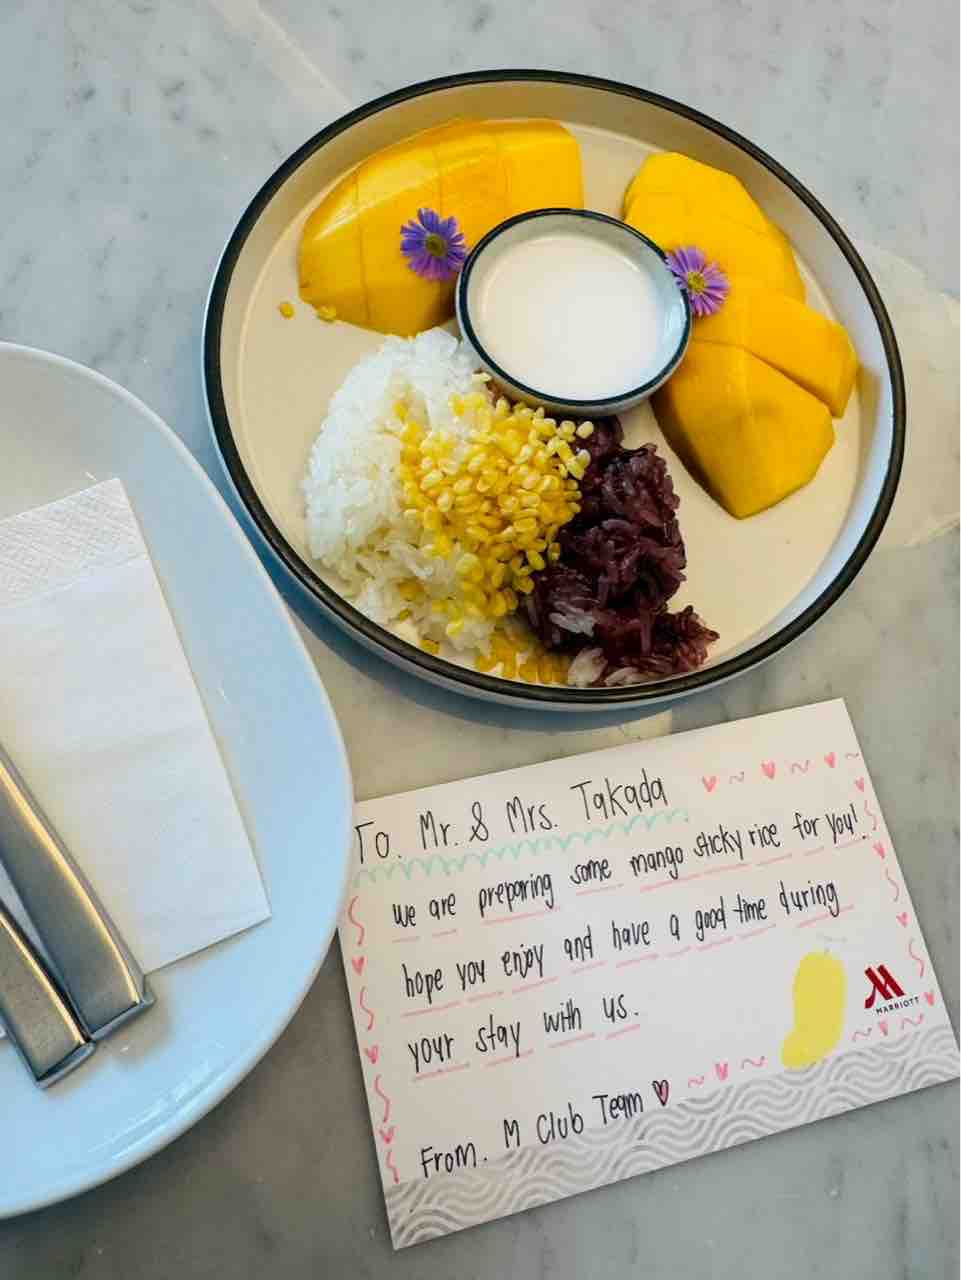 To. Mr. & Mrs. Takada
we are preparing some mango sticky rice for you!
hope you enjoy and have a good time during
your stay with us.
MARRIOTT
From. M Club Team